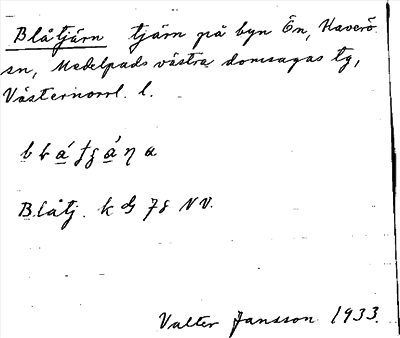 Blåtjärn tjärn på byn Ön, Haverö
sn, Medelpads västra domsagas tg,
Västernorrl. l.
Blåtj. k
NV.
Valter Jansson 1933.